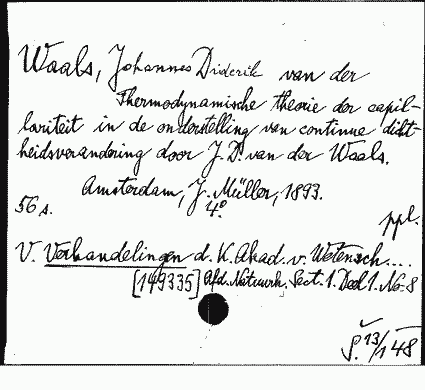 Waals, Johannes Diderik van der
Thermodynamische theorie der capil-
lariteit in de onderstelling van continue dicht-
heidsverandering door J. D. van der Waals.
Amsterdam, J. Müller, 1893.
56 s. 4° ppl.
V. Verhandelingen d. K. Akad. v. Wetensch....
[149335] Afd. Natuurk. Sect. 1. Deel 1. No. 8
Š. 13/1 48